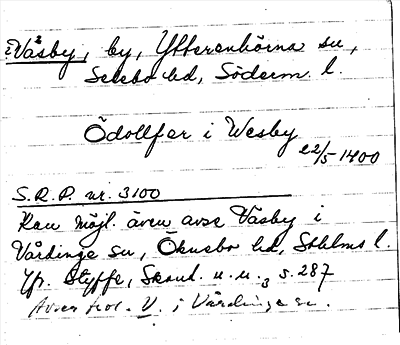 Väsby, by, Ytterenhörna sn,
Selebo hd, Söderm. l.
Ödollfer i Wesby
22/5 1400
S.R.P. nr. 3100
Kan möjl. även avse Väsby i
Vårdinge sn, Öknebo hd, Sthlms l.
Jfr. Styffe, Skand. u. u.3 s. 287
Avser trol. V. i Vårdinge sn.